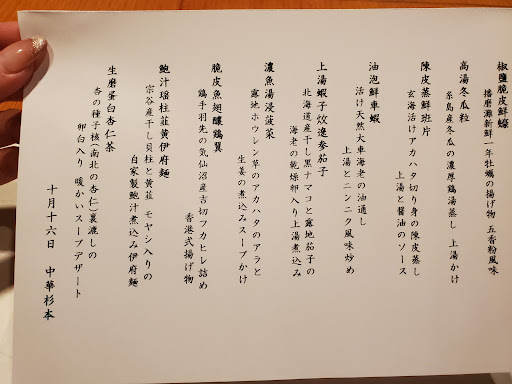 椒鹽脆皮鮮蠔
播磨灘新鮮一年牡蠣の揚げ物 五香粉風味
高湯冬瓜粒
糸島産冬瓜の濃厚鶏湯蒸し 上湯かけ
陳皮蒸鮮班片
玄海活けアカハタ切り身の陳皮蒸し
上湯と醤油のソース
油泡鮮車蝦
活け天然大車海老の油通し
上湯とニンニク風味炒め
上湯蝦子炆遼参茄子
北海道産干し黒ナマコと露地茄子の
海老の乾燥卵入り上湯煮込み
濃魚湯浸菠菜
露地ホウレン草のアカハタのアラと
生姜の煮込みスープかけ
脆皮魚翅釀鷄翼
鶏手羽先の気仙沼産吉切フカヒレ詰め
香港式揚げ物
鮑汁瑤柱韮黄伊府麺
宗谷産干し貝柱と黄韮 モヤシ入りの
自家製鮑汁煮込み伊府麺
生磨蛋白杏仁茶
杏の種子核(南北の杏仁)裏漉しの
卵白入り 暖かいスープデザート
十月十六日 中華杉本